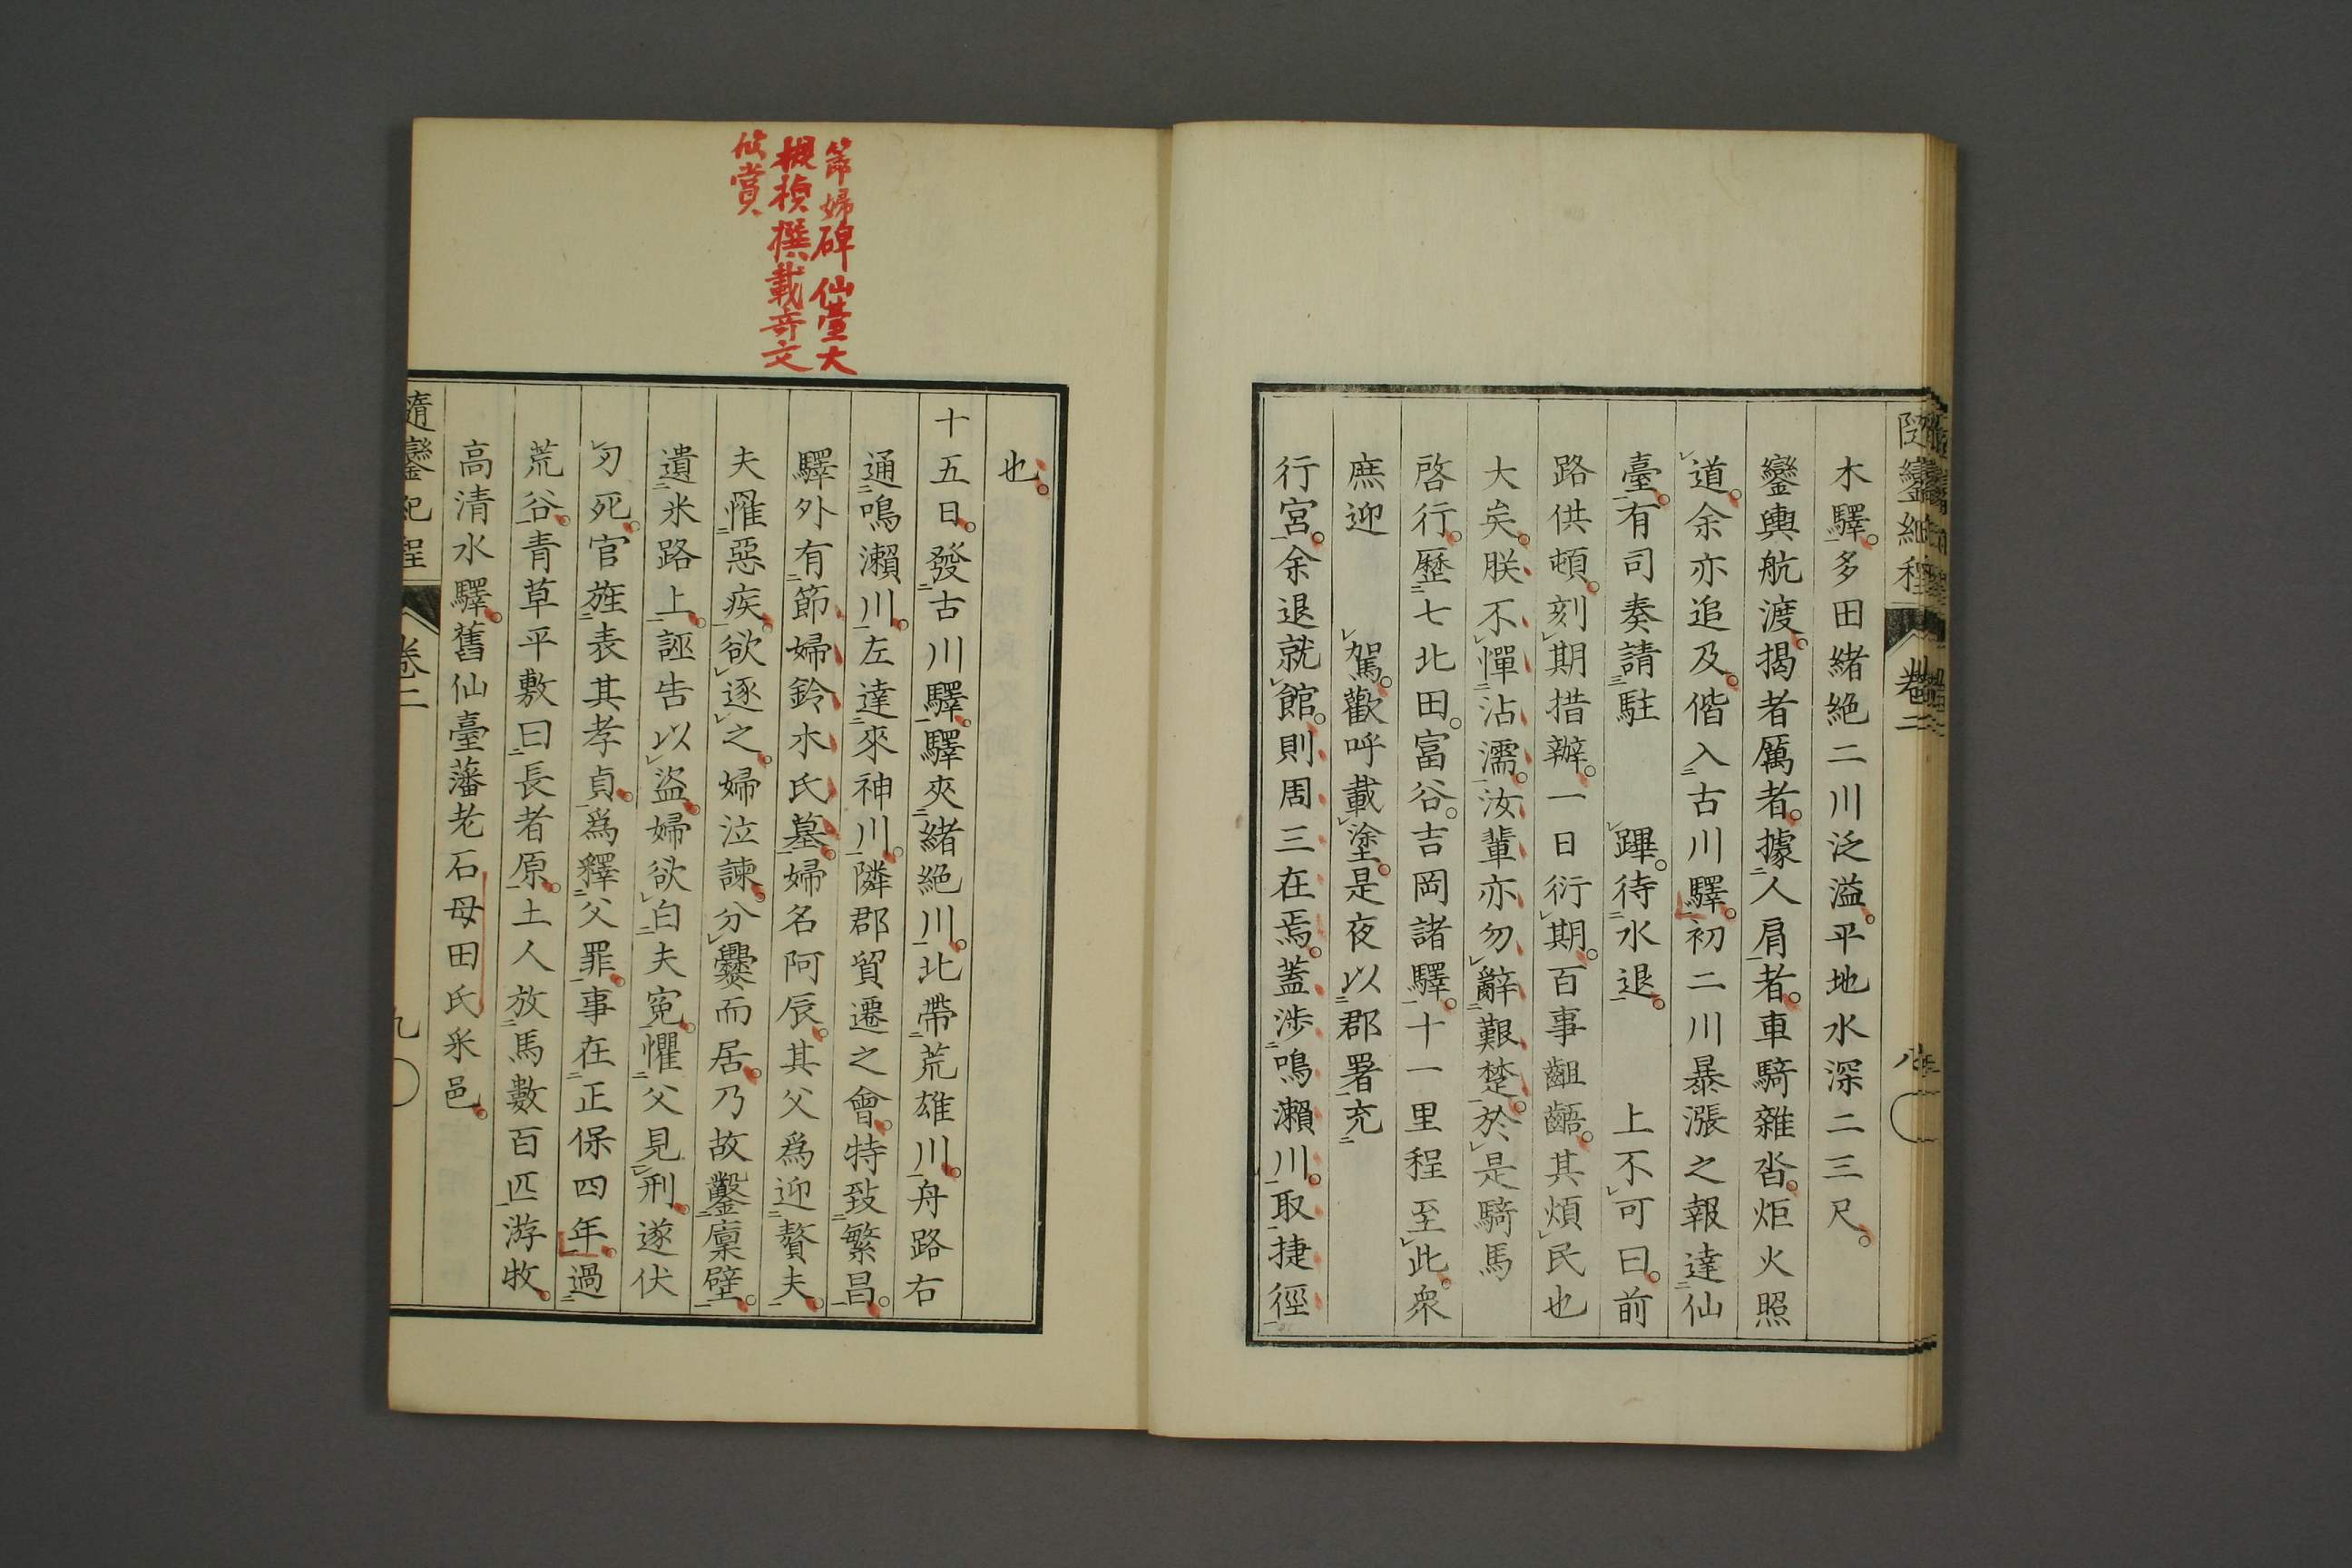 隨鑾紀程
卷二
八
木驛。多田緒絶二川泛溢。平地水深二三尺。
鑾輿航渡。揭者厲者。據人肩者。車騎雜沓。炬火照
道。余亦追及。偕入古川驛。初二川暴漲之報達仙
臺。有司奏請駐 蹕。待水退。 上不可曰。前
路供頓。刻期措辦。一日衍期。百事齟齬。其煩民也
大矣。朕不憚沾濡。汝輩亦勿辭艱楚。於是騎馬
啓行。歷七北田。富谷。吉岡諸驛。十一里程至此。衆
庶迎 駕。歡呼載塗。是夜以郡署充
行宮。余退就館。則周三在焉。蓋涉鳴瀨川。取捷徑
也。
十五日。發古川驛。驛夾緒絶川。北帶荒雄川。舟路右
通鳴瀨川。左達來神川。隣郡貿遷之會。特致繁昌。
驛外有節婦鈴木氏墓。婦名阿辰。其父爲迎贅夫。
夫罹惡疾。欲逐之。婦泣諫。分爨而居。乃故鑿廩壁。
遺米路上。誣告以盜。婦欲白夫寃。懼父見刑。遂伏
刃死。官旌表其孝貞。爲釋父罪。事在正保四年。過
荒谷。青草平敷曰長者原。土人放馬數百匹游牧。
高清水驛。舊仙臺藩老石母田氏采邑。
隨鑾紀程
卷二
九
節婦碑仙臺大
槻楨撰載奇文
欣賞